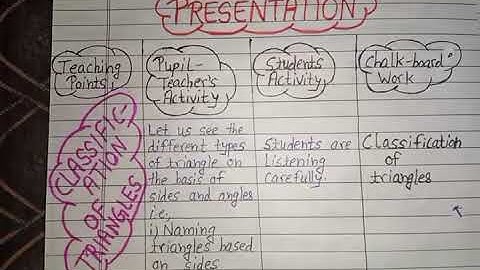 PRESENTATION
Teaching
Points
Pupil-
Teacher's
Activity
Students
Activity
Chalk-board
Work
CLASSIFIC-
ATION
OF
TRIANGLES
Let us see the
different types
of triangle on
the basis of
sides and angles
i.e.,
i) Naming
triangles based
on sides
Students are
listening
carefully.
Classification
of
triangles